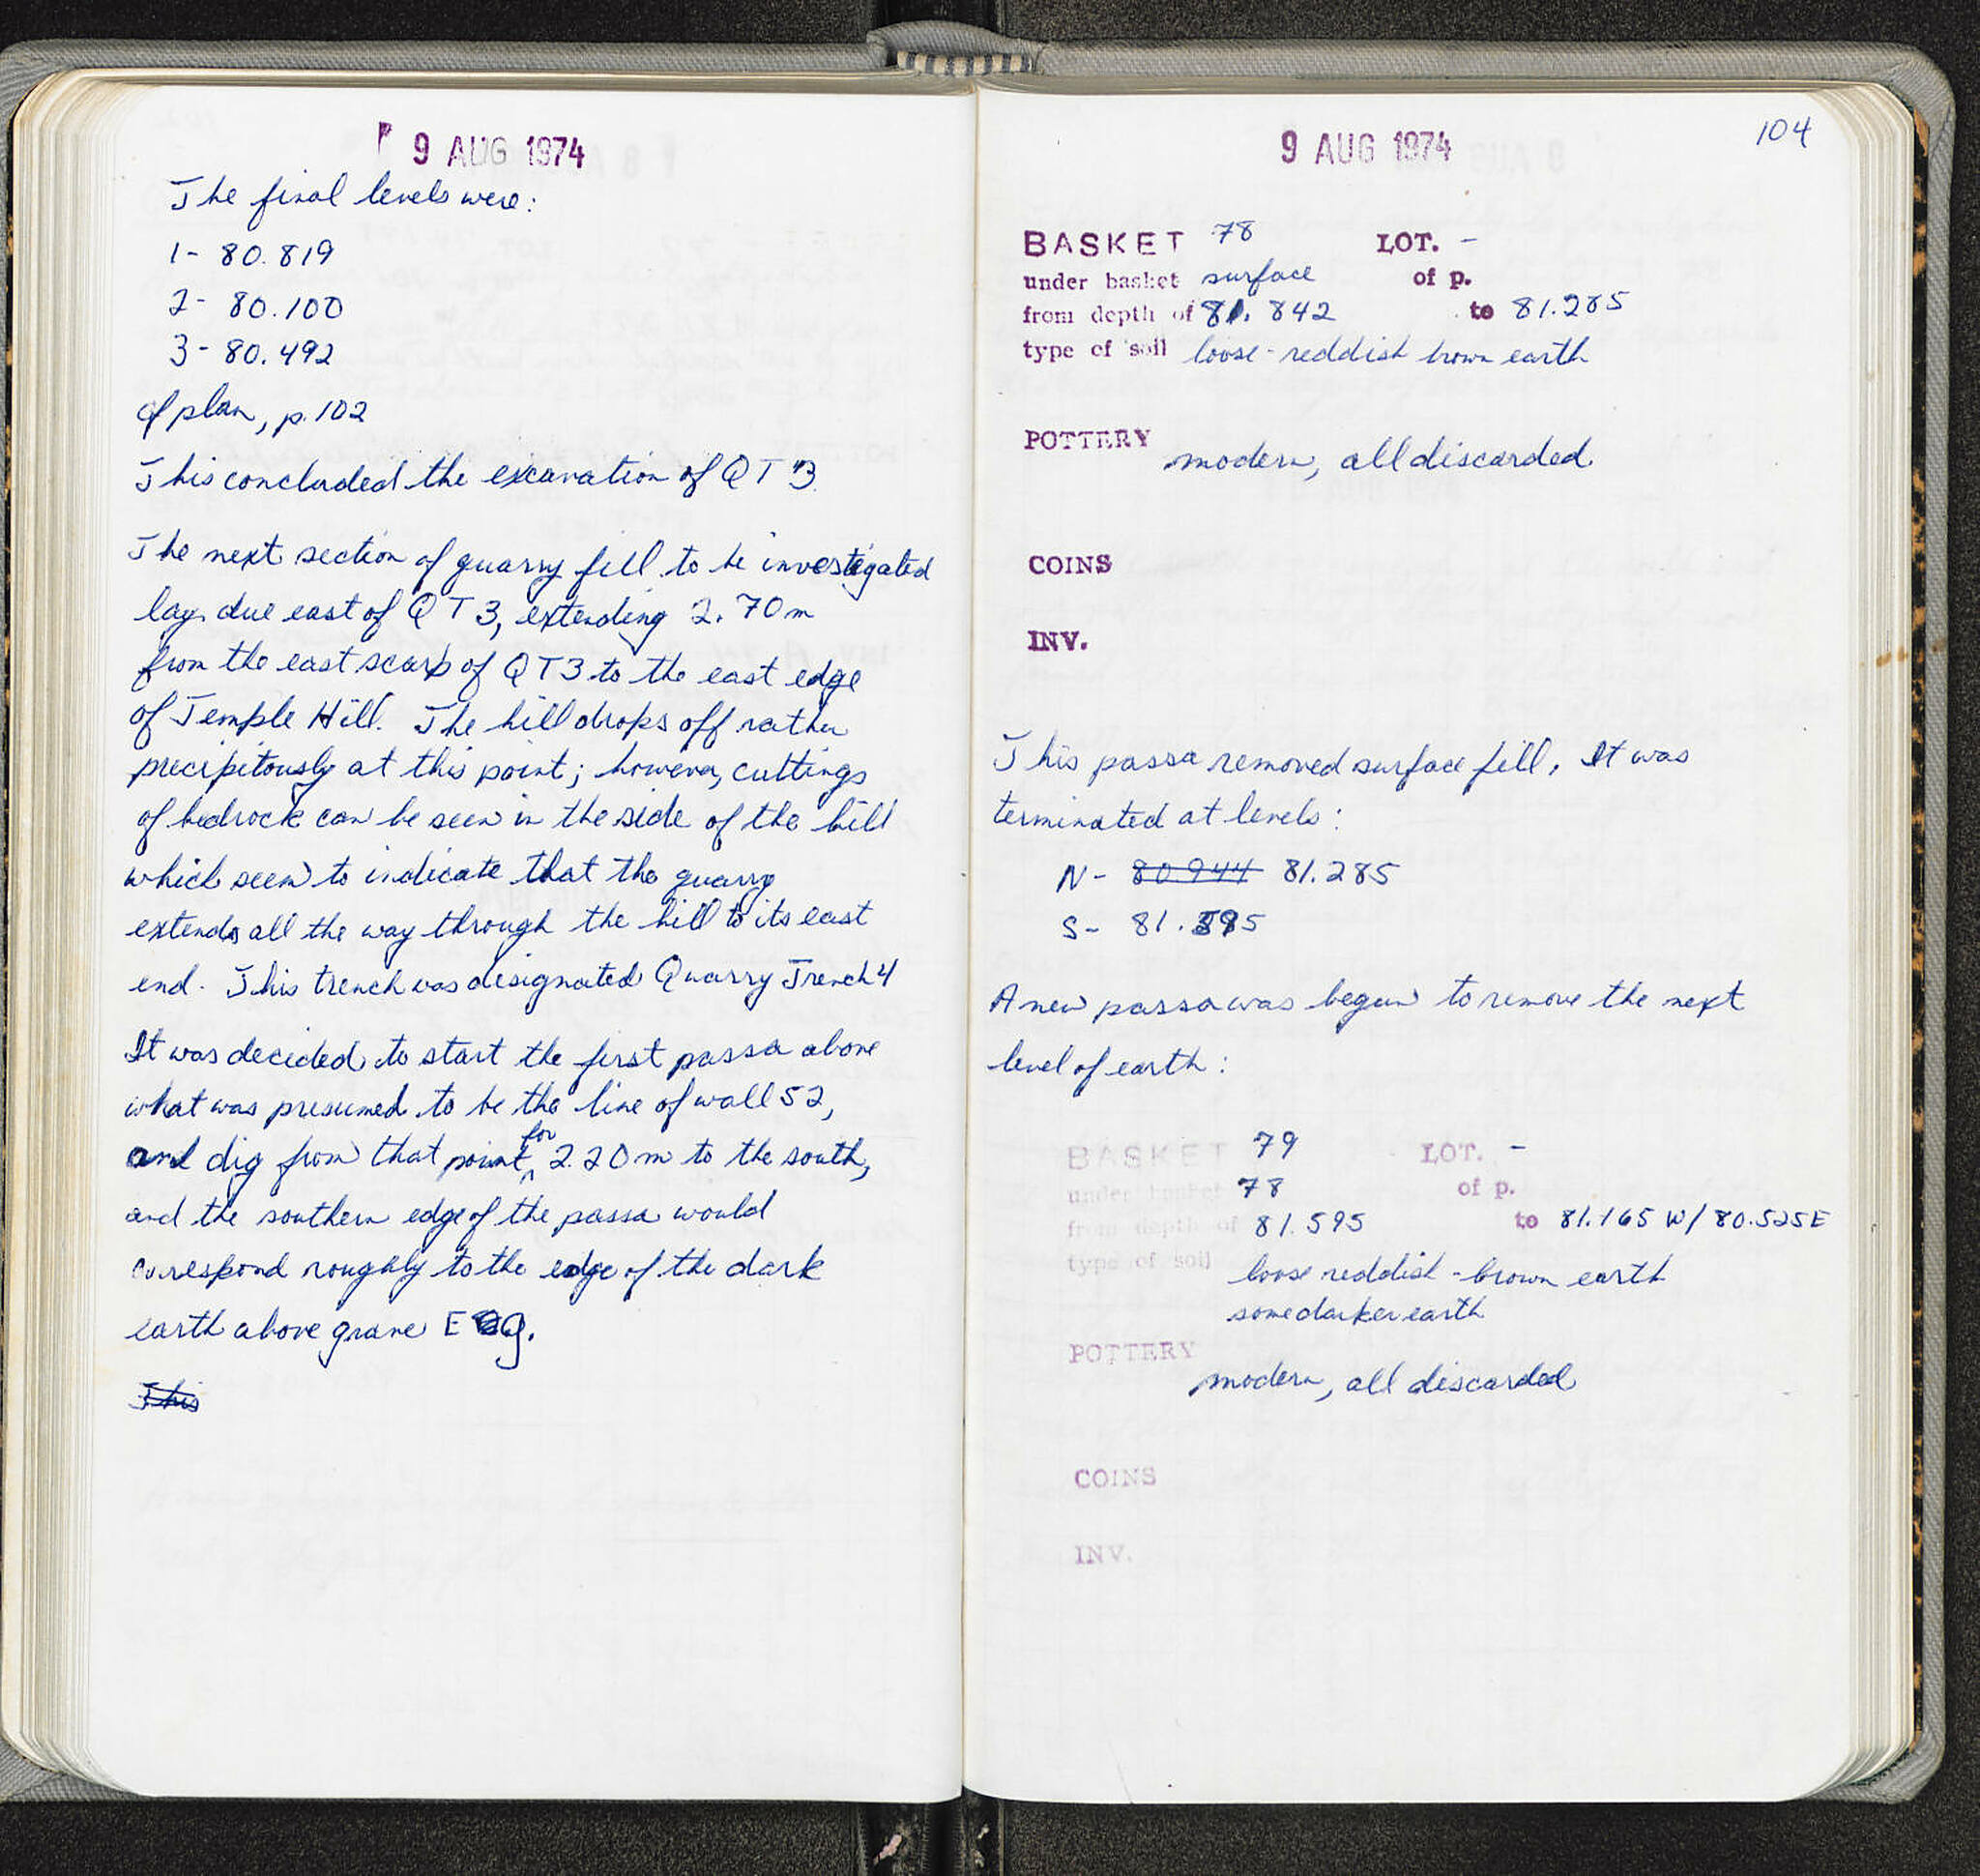 9 AUG 1974
The final levels were:
1- 80.819
2- 80.100
3- 80.492
cf plan, p.102
This concluded the excavation of QT 3.
The next section of quarry fill to be investigated
lay due east of QT3, extending 2.70m
from the east scarp of QT3 to the east edge
of Temple Hill. The hill drops off rather
precipitously at this point; however, cuttings
of bedrock can be seen in the side of the hill
which seem to indicate that the quarry
extends all the way through the hill to its east
end. This trench was designated Quarry Trench 4
It was decided to start the first passa above
what was presumed to be the line of wall 52,
and dig from that point for 2.20m to the south,
and the southern edge of the passa would
correspond roughly to the edge of the dark
earth above grave E g.
This
9 AUG 1974
104
BASKET 78 LOT. -
under basket surface of p.
from depth of 81.842 to 81.285
type of soil loose-reddish brown earth
POTTERY modern, all discarded.
COINS
INV.
This passa removed surface fill. It was
terminated at levels:
N- 80.944 81.285
S- 81.595
A new passa was begun to remove the next
level of earth:
BASKET 79 LOT. -
under basket 78 of p.
from depth of 81.595 to 81.165 W/80.525E
type of soil loose reddish-brown earth
some darker earth
POTTERY modern, all discarded
COINS
INV.